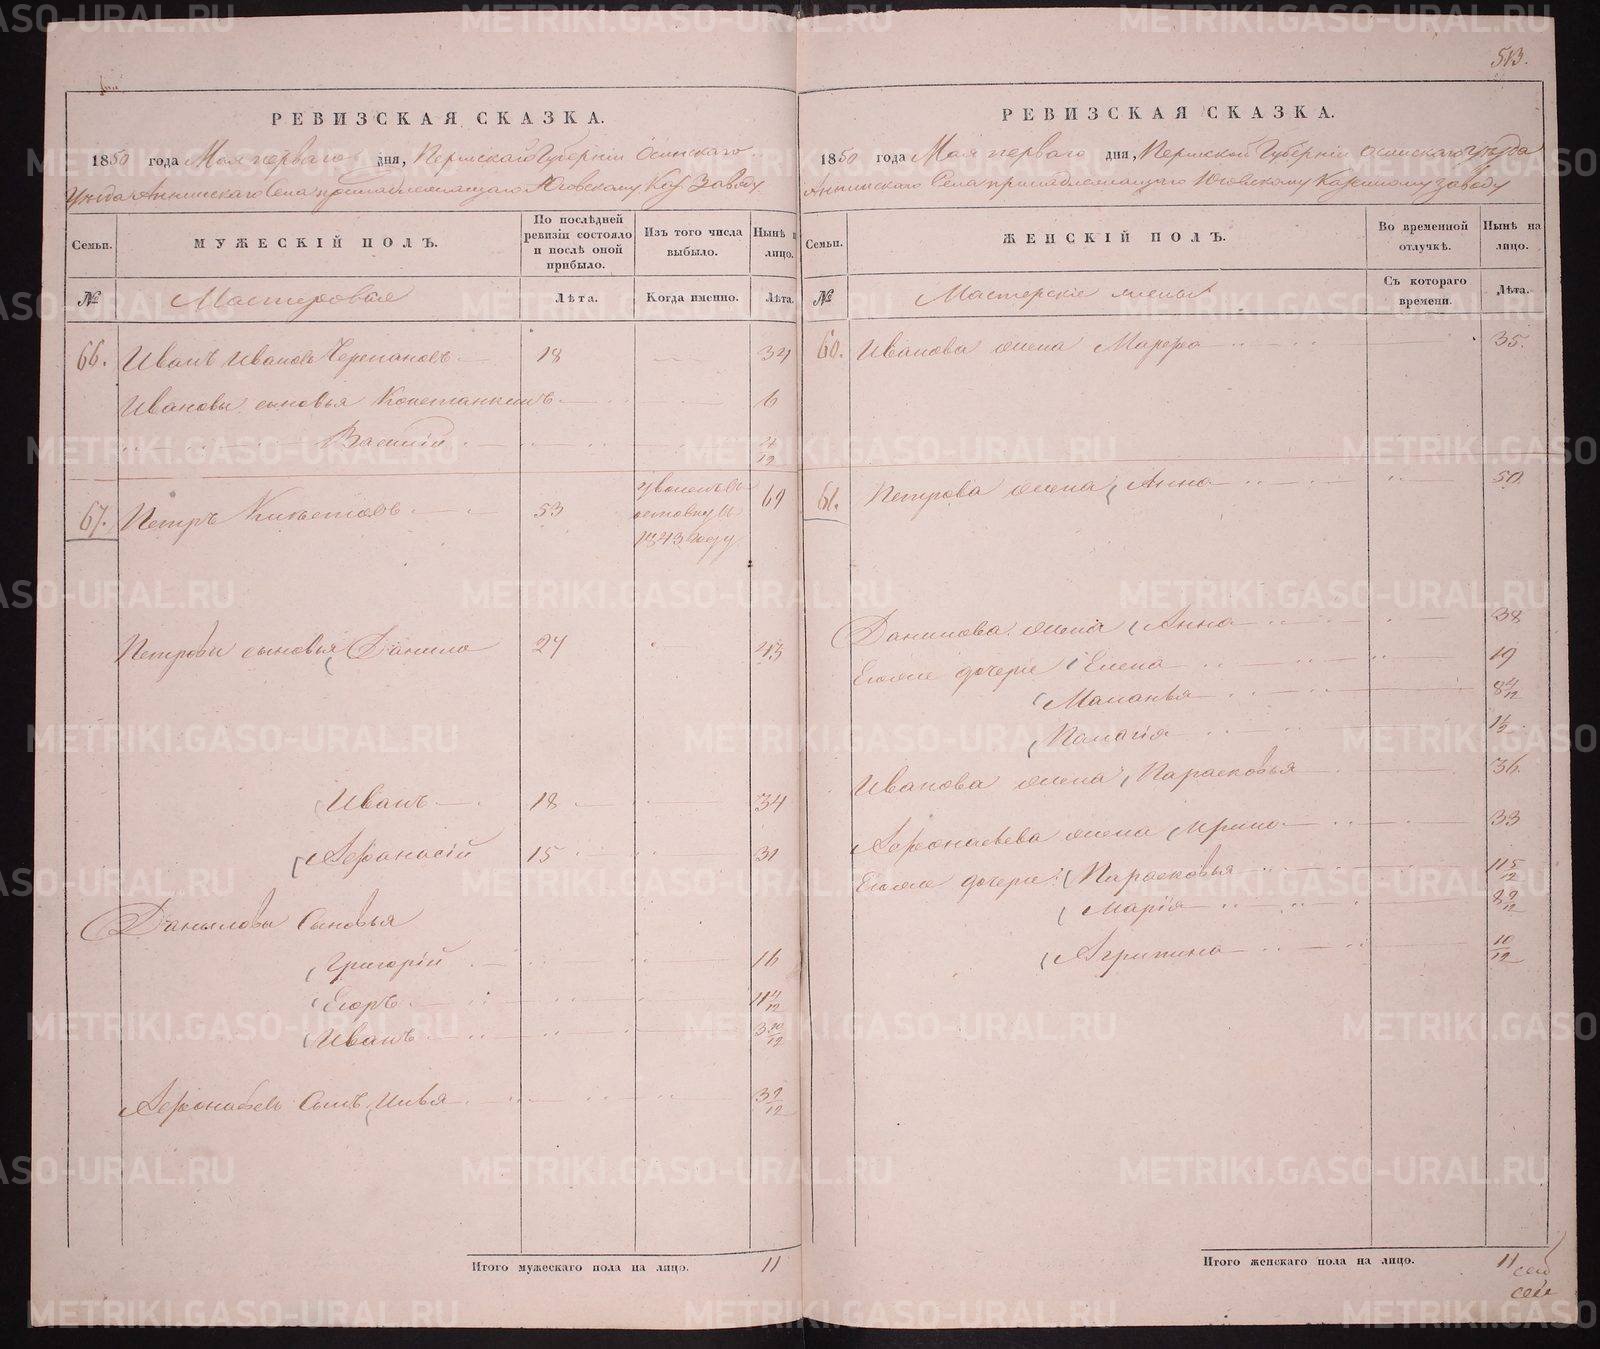 513.
РЕВИЗСКАЯ СКАЗКА.
1850 года Мая перваго дня, Пермской Губерніи Осинскаго
Уезда Аннинскаго Села принадлежащаго Юговскому Каз. Заводу
Семьи. МУЖЕСКІЙ ПОЛЪ. По послѣдней ревизіи состояло и послѣ оной прибыло. Изъ того числа выбыло. Нынѣ н лицо.
№ Мастеровые Лѣта. Когда именно. Лѣта.
66. Иванъ Ивановъ Черепановъ 18 34
Ивановы сыновья Константинъ 6
Василій 4/12
67. Петръ 53 уволенъ въ отставку въ 1843 году 69
Петровы сыновья Данило 27 43
Иванъ 18 34
Афанасій 15 31
Даниловы Сыновья
Григорій 16
Егоръ 11 4/12
Иванъ 3 10/12
Афонасьевъ Сынъ Илья 3 9/12
Итого мужескаго пола на лицо. 11
РЕВИЗСКАЯ СКАЗКА.
1850 года Мая перваго дня, Пермской Губерніи Осинскаго Уезда
Аннинскаго Села принадлежащаго Юговскому Казенному заводу
Семьи. ЖЕНСКІЙ ПОЛЪ. Во временной отлучкѣ. Нынѣ на лицо.
№ Мастерскіе жены Съ котораго времени. Лѣта.
60. Иванова жена Марфа 35.
61. Петрова жена Анна 50
Данилова жена Анна 38
Егоже дочери Елена 19
Маланья 8 4/12
Палагія 1 1/2
Иванова жена Парасковья 36
Афонасьева жена Ирина 33
Егоже дочери Парасковья 11 5/12
Марія 8 9/12
Агрипина 10/12
Итого женскаго пола на лицо. 11
METRIKI.GASO-URAL.RU